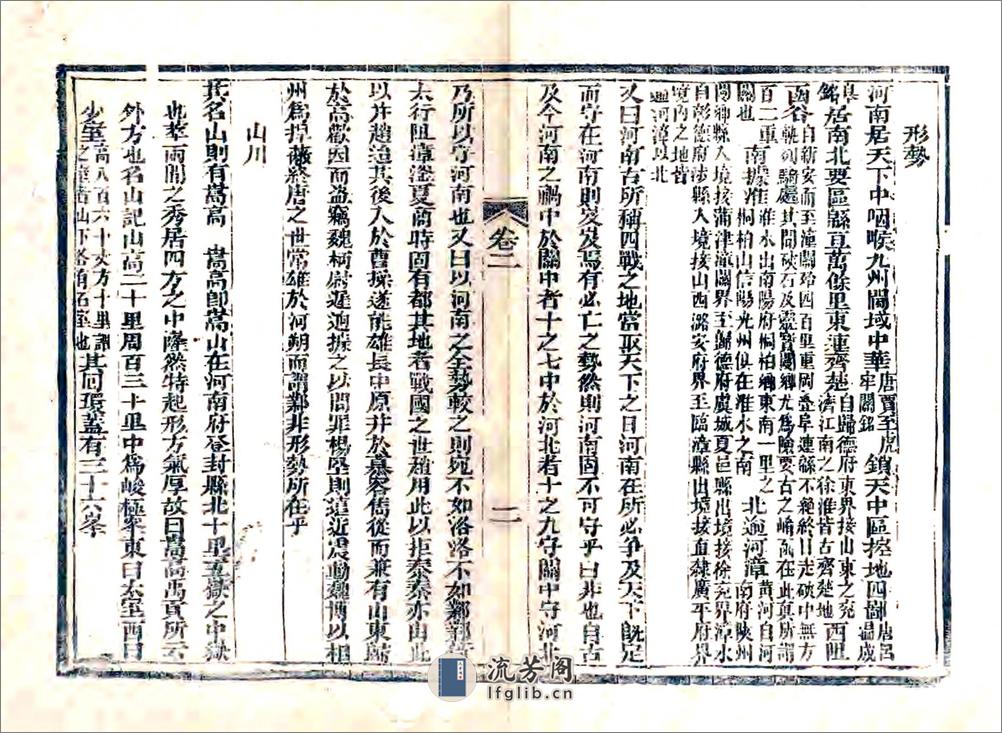 形勢
河南居天下中咽喉九州閫域中華唐賈至虎牢關銘鎖天中區控地四鄙唐呂溫成
皋銘居南北要區緜亘萬餘里東連齊楚自歸德府東界接山東之兖濟江南之徐淮皆古齊楚地西阻
函谷自新安而至潼關殆四百里重岡疊阜連緜不絶終日走硤中無方軌列騎處其間硤石及靈寶閿鄉尤爲險要古之崤函在此眞所謂
百二重關也南據淮淮水出南陽府桐柏縣東南一里之桐柏山信陽光州俱在淮水之南北逾河漳黄河自河南府陜州
閿鄉縣入境接蒲津潼關界至歸德府虞城夏邑縣出境接徐兖界漳水
自彰德府涉縣入境接山西潞安府界至臨漳縣出境接直隸廣平府界
境内之地皆逾河漳以北
又曰河南古所稱四戰之地當取天下之日河南在所必爭及天下旣定
而守在河南則岌岌焉有必亡之勢然則河南固不可守乎曰非也自古
及今河南之禍中於關中者十之七中於河北者十之九守關中守河北
卷二
二
乃所以守河南也又曰以河南之全勢較之則宛不如洛洛不如鄴鄴
太行阻漳滏夏商時固有都其地者戰國之世趙用此以拒秦秦亦由此
以并趙迨其後入於曹操遂能雄長中原并於慕容儁從而兼有山東歸
於高歡因而盜竊魏柄尉遲迥據之以問罪楊堅則遠近震動魏博以相
州爲捍蔽終唐之世常雄於河朔而謂鄴非形勢所在乎
山川
其名山則有嵩高 嵩高卽嵩山在河南府登封縣北十里五嶽之中嶽
也萃兩間之秀居四方之中隆然特起形方氣厚故曰嵩高禹貢所云
外方也名山記山高二十里周百三十里中爲峻極峯東曰太室西曰
少室高八百六十丈方十里謂之室者山下各有石室也其间環葢有三十六峯
流芳阁
lfglib.cn